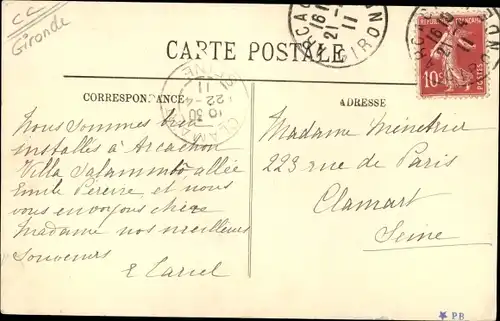 CC
Gironde
CARTE POSTALE
CORRESPONDANCE
ADRESSE
ARCACHON
16 15
21-4
11
GIRONDE
RÉPUBLIQUE FRANÇAISE
10c
CLAMART
16 30
22-4
11
SEINE
Nous sommes bien
installés à Arcachon
Villa Salammbô allée
Emile Pereire et nous
vous envoyons chère
Madame nos meilleurs
souvenirs
E Lariel
Madame Ménétrier
223 rue de Paris
Clamart
Seine
PB